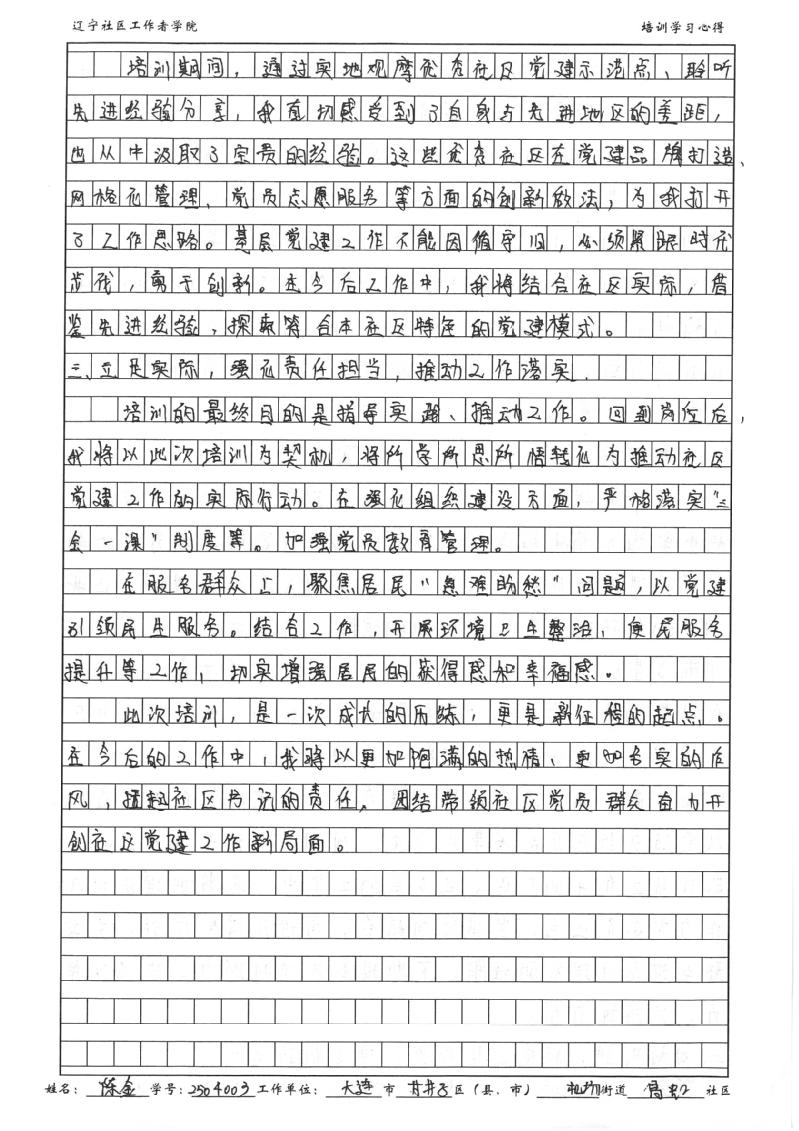 辽宁社区工作者学院 培训学习心得
培训期间，通过实地观摩优秀社区党建示范点、聆听
先进经验分享，我直切感受到了自身与先进地区的差距，
也从中汲取了宝贵的经验。这些优秀社区在党建品牌打造、
网格化管理、党员志愿服务等方面的创新做法，为我打开
了工作思路。基层党建工作不能因循守旧，必须紧跟时代
步伐，勇于创新。在今后工作中，我将结合社区实际，借
鉴先进经验，探索符合本社区特色的党建模式。
三、立足实际，强化责任担当，推动工作落实.
培训的最终目的是指导实践、推动工作。回到岗位后，
我将以此次培训为契机，将所学所思所悟转化为推动社区
党建工作的实际行动。在强化组织建设方面，严格落实“三
会一课”制度等。加强党员教育管理。
在服务群众上，聚焦居民“急难盼愁”问题，以党建
引领民生服务。结合工作，开展环境卫生整治，便民服务
提升等工作，切实增强居民的获得感和幸福感。
此次培训，是一次成长的历练，更是新征程的起点。
在今后的工作中，我将以更加饱满的热情、更加务实的作
风，担起社区书记的责任，团结带领社区党员群众奋力开
创社区党建工作新局面。
姓名：陈金 学号：2504003 工作单位：大连市甘井子区（县、市）机场街道 社区